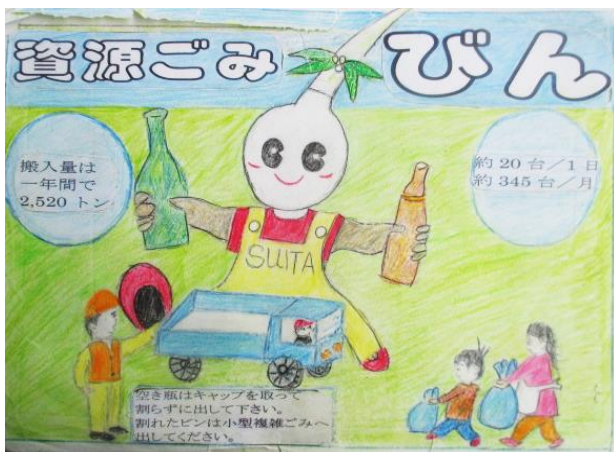 資源ごみ びん
搬入量は
一年間で
2,520 トン
約 20 台／1 日
約 345 台／月
SUITA
空き瓶はキャップを取って
割らずに出して下さい。
割れたビンは小型複雑ごみへ
出してください。